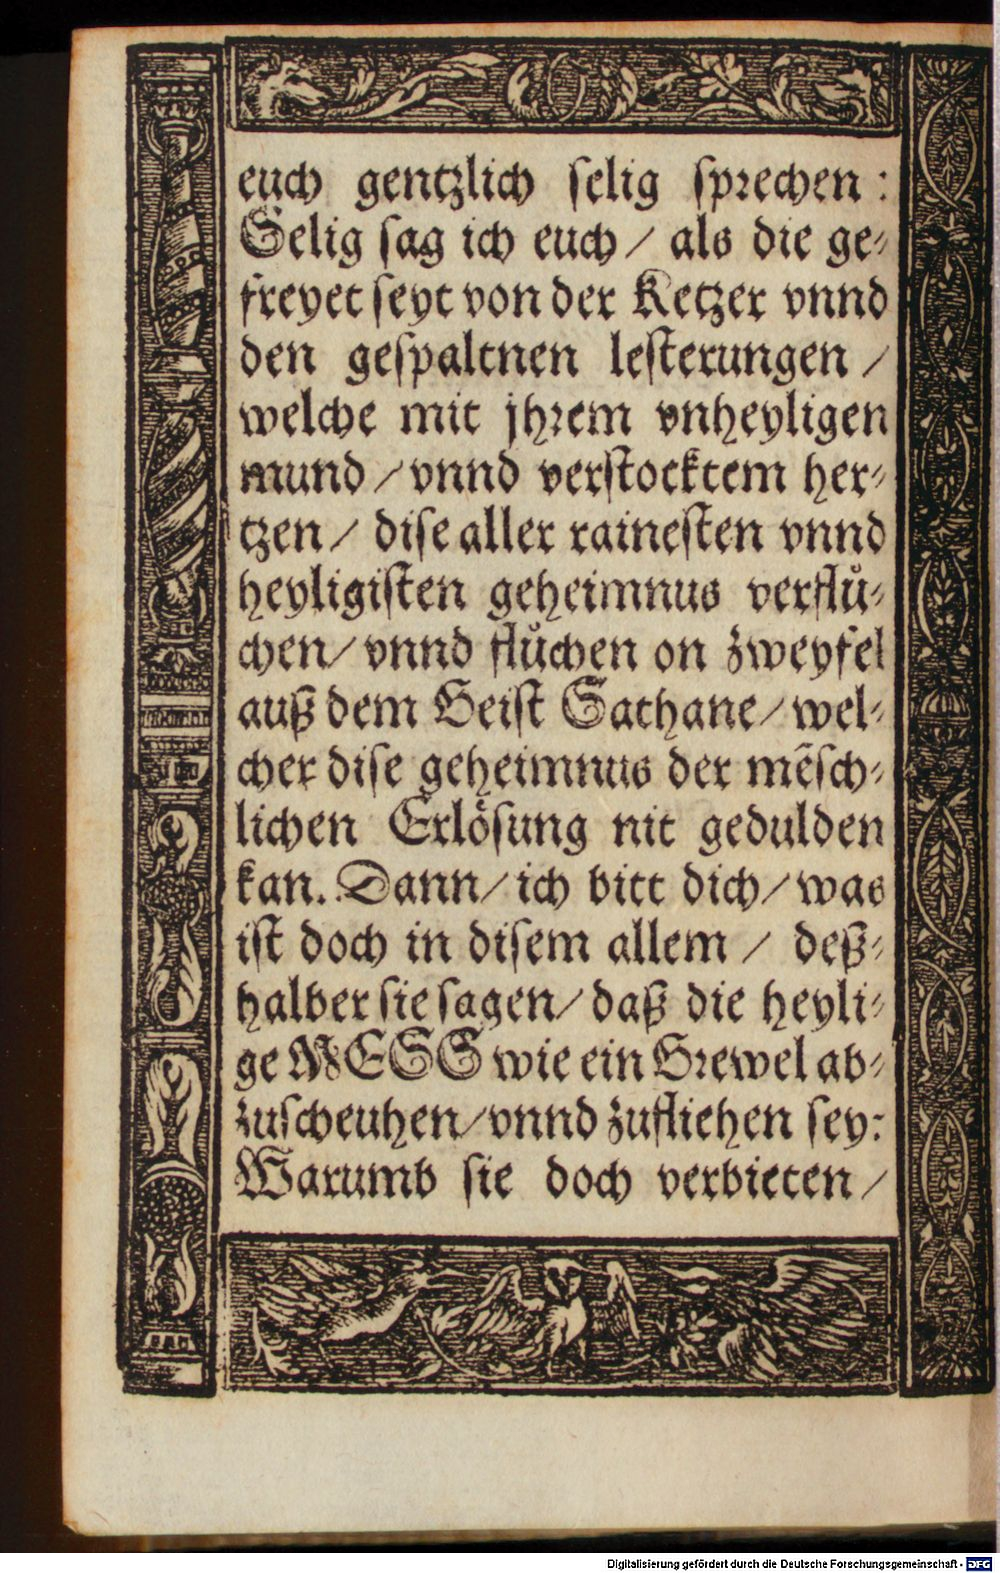 euch gentzlich selig sprechen :
Selig sag ich euch / als die ge⸗
freyet seyt von der Ketzer vnnd
den gespaltnen lesterungen /
welche mit jhrem vnheyligen
mund / vnnd verstocktem her⸗
tzen / dise aller rainesten vnnd
heyligisten geheimnus verflů⸗
chen / vnnd flůchen on zweyfel
auß dem Geist Sathane / wel⸗
cher dise geheimnus der mẽsch⸗
lichen Erlösung nit gedulden
kan. Dann / ich bitt dich / was
ist doch in disem allem / deß⸗
halber sie sagen / daß die heyli⸗
ge MESS wie ein Grewel ab⸗
zuscheuhen / vnnd zufliehen sey:
Warumb sie doch verbieten /
Digitalisierung gefördert durch die Deutsche Forschungsgemeinschaft - DFG